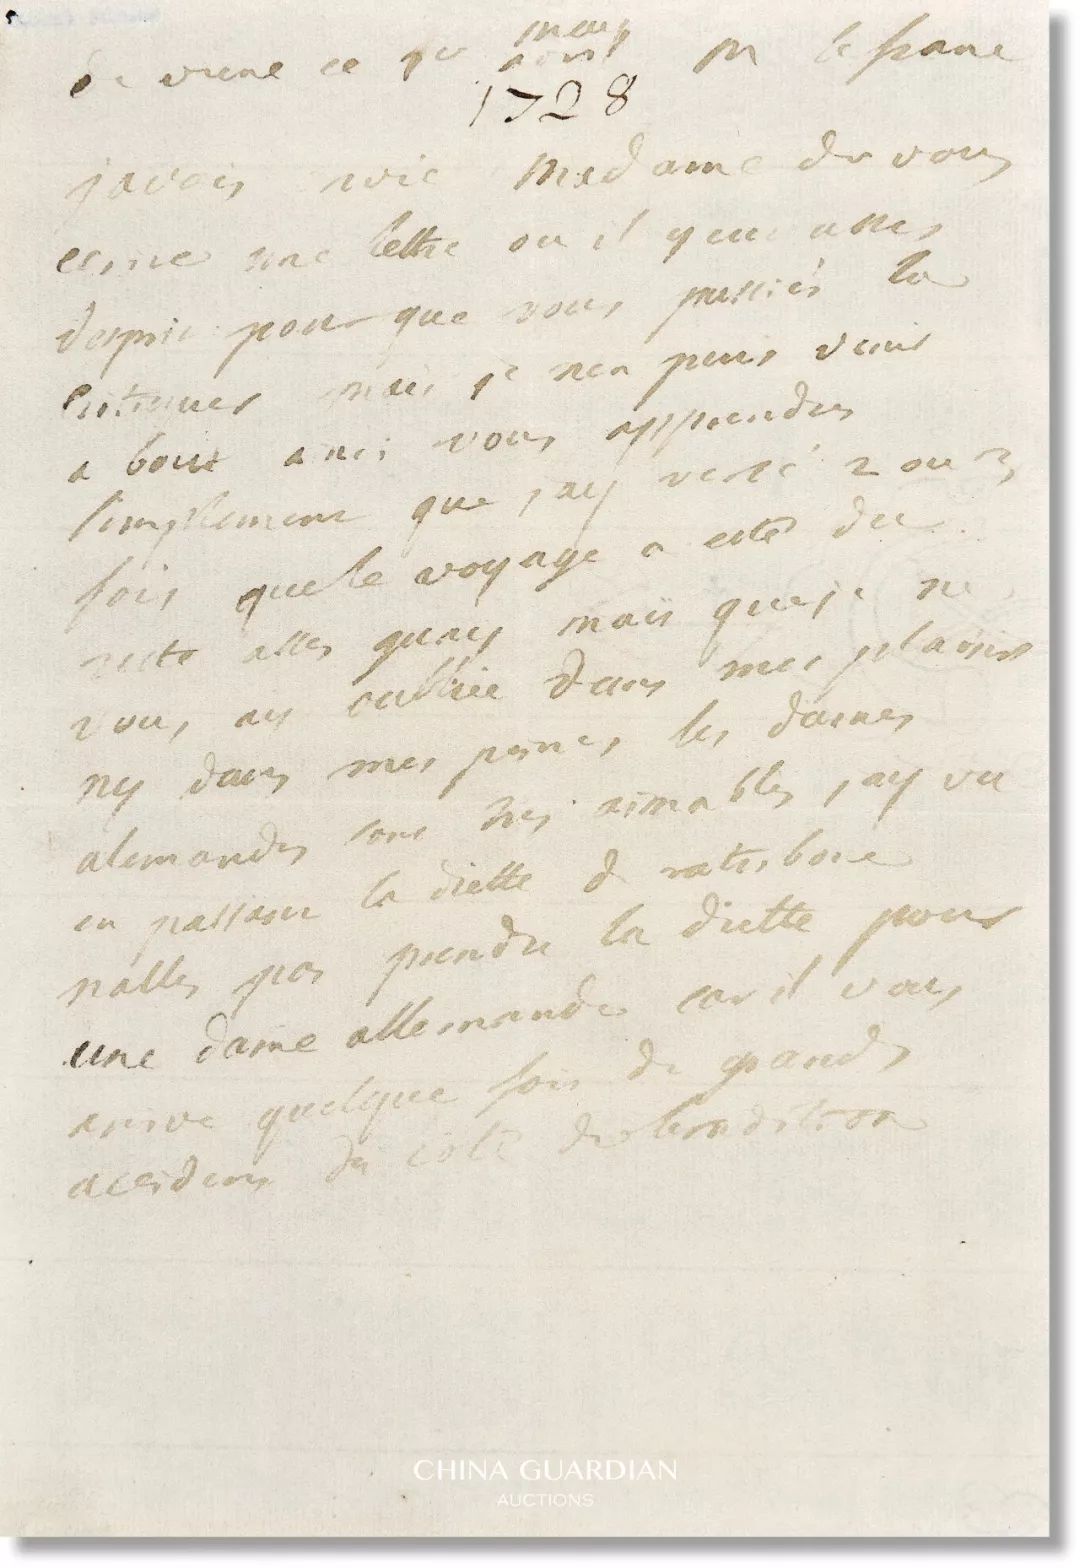 de viene ce 1er may M le franc
avril
1728
javois envie Madame de vous
ecrire une lettre ou il y eut asses
desprit pour que vous pussiés la
critiquer mais je nen puis venir
a bout ainsi vous apprendres
simplement que jay versé 2 ou 3
fois que le voyage a esté du
reste asses guay mais que je ne
vous ay oubliée dans mes plaisirs
ny dans mes peines les dames
alemandes sont tres aimables jay vu
en passant la diette de ratisbone
nalles pas prendre la diette pour
une dame allemande car il vous
arrive quelque fois de grands
accidens du coté de
CHINA GUARDIAN
AUCTIONS